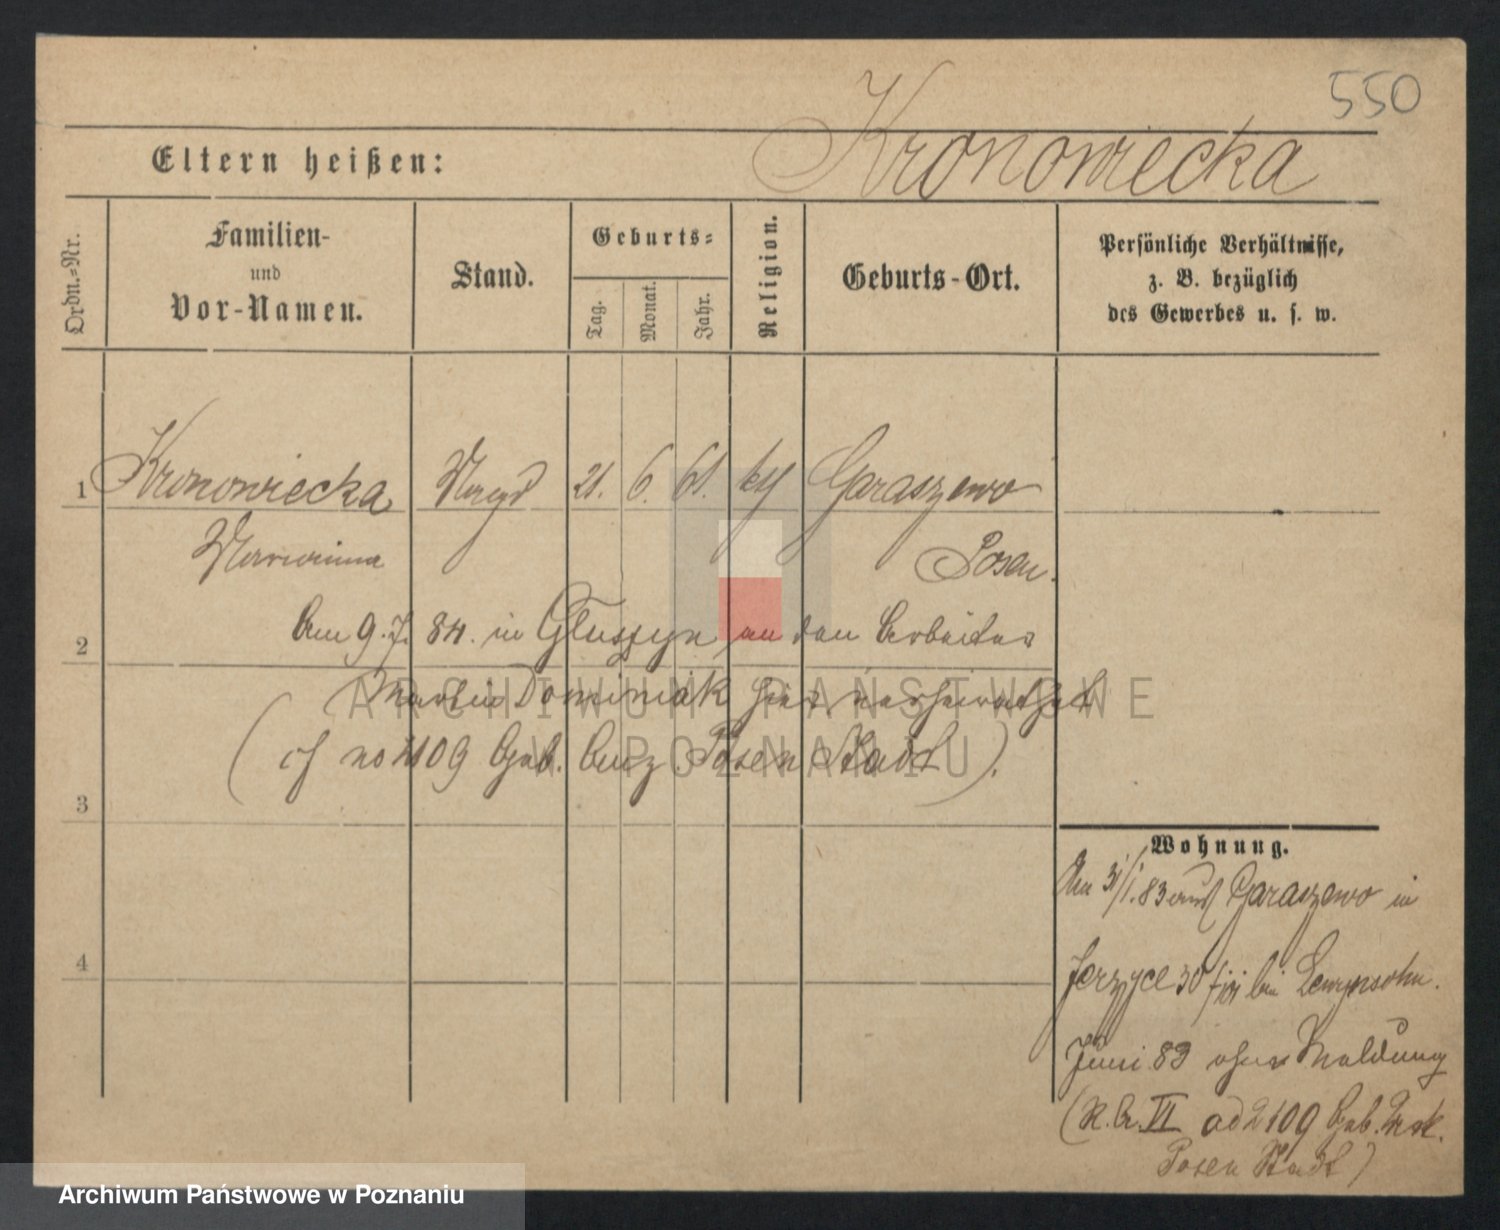 550
Kronowiecka
Eltern heißen:
Ordn.-Nr.
Familien-
und
Vor-Namen.
Stand.
Geburts-
Tag.
Monat.
Jahr.
Religion.
Geburts-Ort.
Persönliche Verhältnisse,
z. B. bezüglich
des Gewerbes u. s. w.
1 Kronowiecka Magd 21. 6. 61. k Garaszewo
Marianna Posen.
Am 9. 7. 84. in Gluszyn an den Arbeiter
2
Martin Dominiak hier verheirathet
(cf no 2109 Geb. Posen Stadt).
3
4
Wohnung.
Am 3/1. 83 aus Garaszewo in
Jerzyce 30 bei Lewynsohn.
Juni 83 ohne Meldung
(R. A. VI ad 2109 Geb.
Posen Stadt)
ARCHIWUM PAŃSTWOWE
W POZNANIU
Archiwum Państwowe w Poznaniu